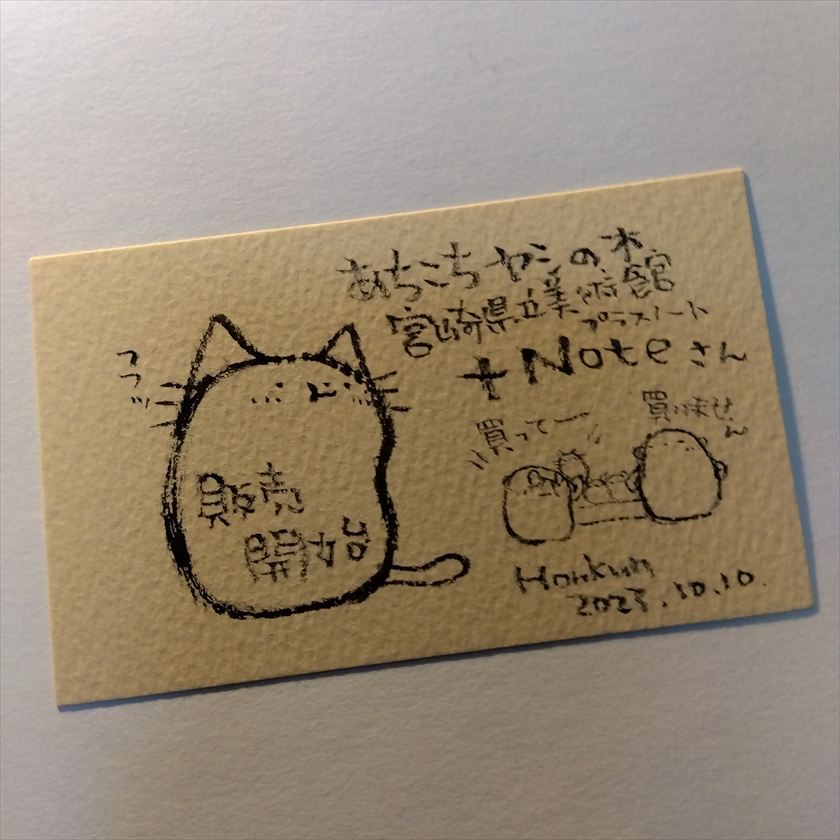 あちこちヤシの木
宮崎県立美術館
プラスノート
+Noteさん
フフッ
販売
開始
買ってー
買いません
Honkun
2023.10.10.